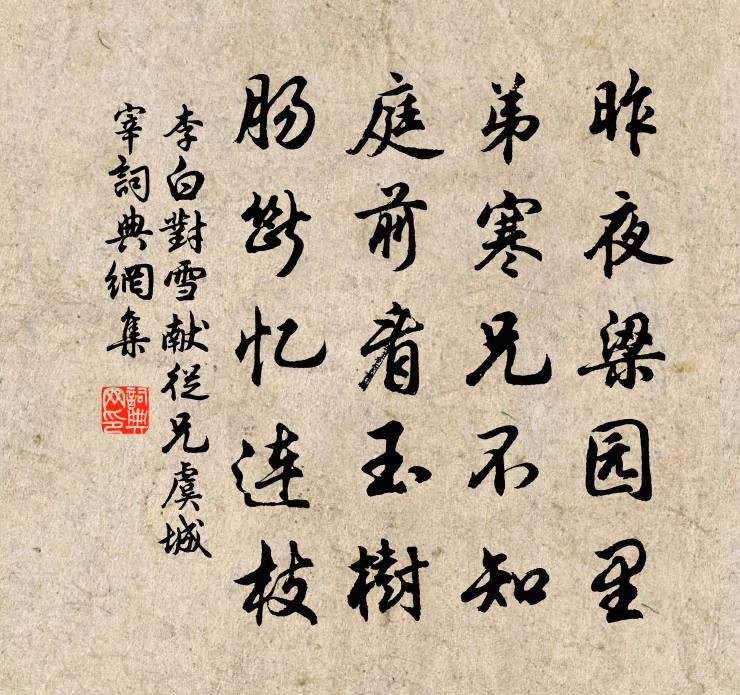 昨夜梁园里
弟寒兄不知
庭前看玉樹
肠斷忆连枝
李白對雪献從兄虞城
宰詞典網集
詞典
网印